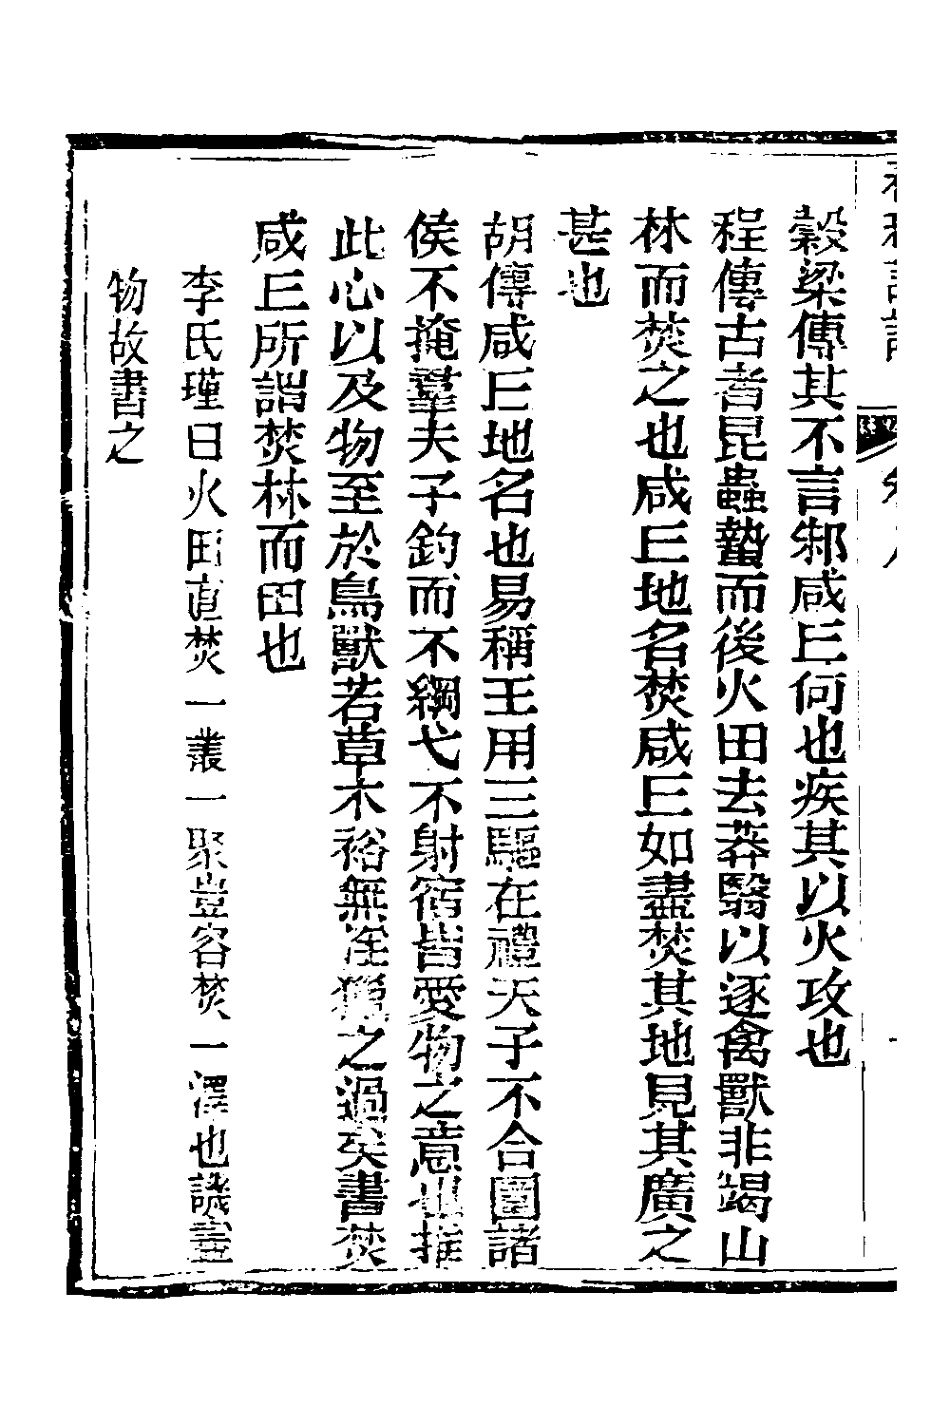 穀梁傳其不言邾咸丘何也疾其以火攻也
程傳古者昆蟲蟄而後火田去莽翳以逐禽獸非竭山
林而焚之也咸丘地名焚咸丘如盡焚其地見其廣之
甚也
胡傳咸丘地名也易稱王用三驅在禮天子不合圍諸
侯不掩羣夫子釣而不綱弋不射宿皆愛物之意也推
此心以及物至於鳥獸若草木裕無淫獵之過矣書焚
咸丘所謂焚林而田也
李氏瑾曰火田直焚一叢一聚豈容焚一澤也譏盡
物故書之